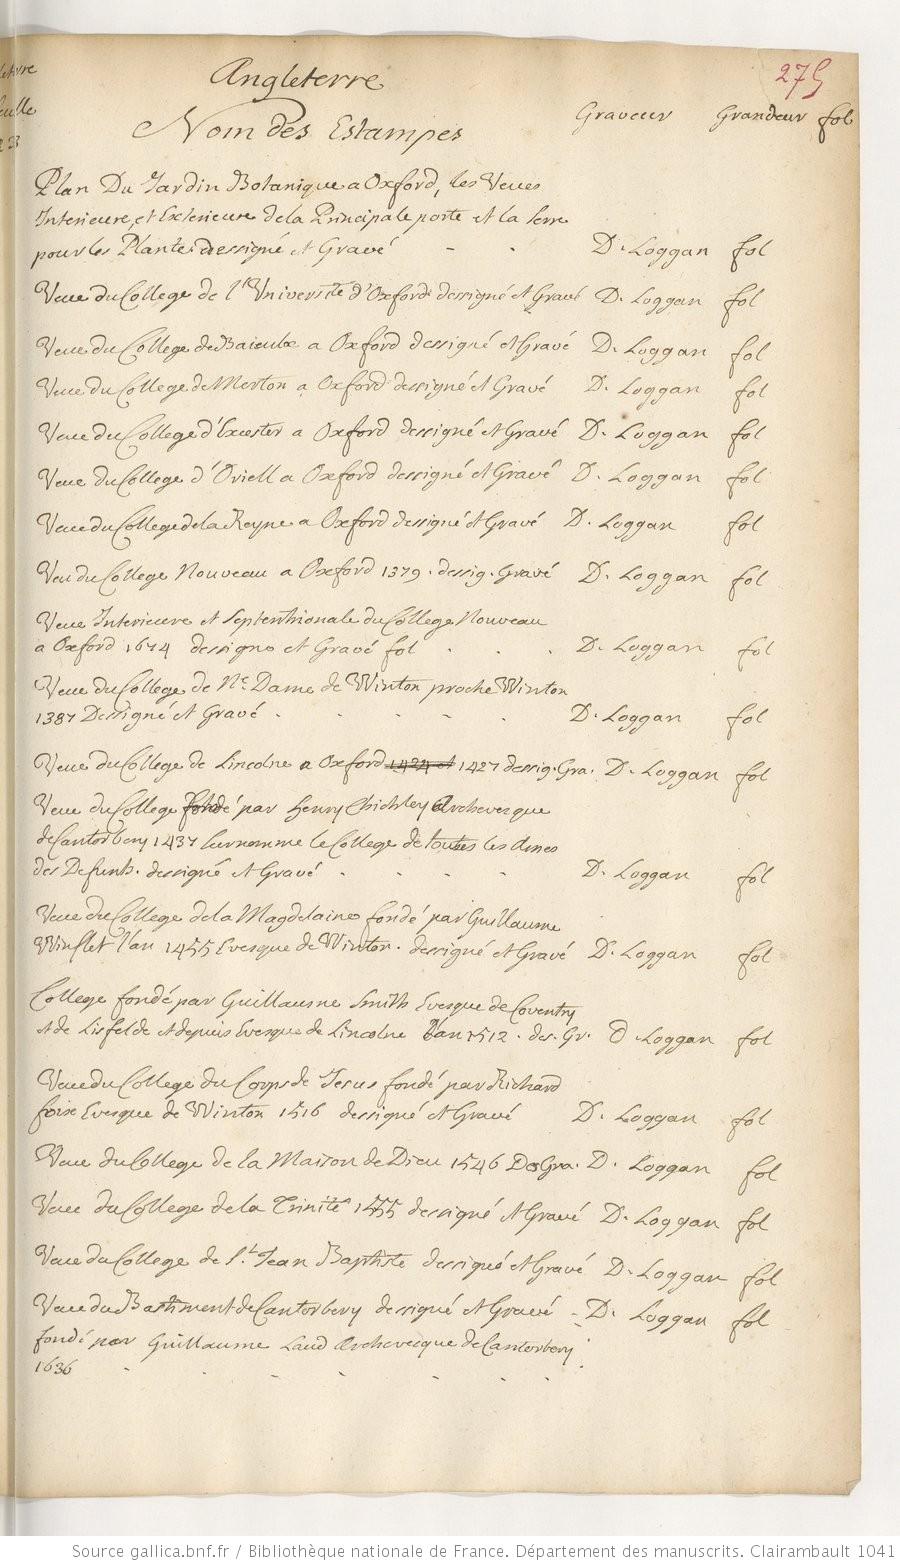 Angleterre
275
Nom des Estampes Graveur Grandeur fol
Plan Du Jardin Botanique a Oxford, les Veues
Interieure, et Exterieure de la Principale porte et la serre
pour les Plantes dessigné et Gravé - - D. Loggan fol
Veue du College de l'Université d'Oxford dessigné et Gravé D. Loggan fol
Veue du College de Baieulx a Oxford dessigné et Gravé D. Loggan fol
Veue du College de Merton a Oxford dessigné et Gravé D. Loggan fol
Veue du College d'Excester a Oxford dessigné et Gravé D. Loggan fol
Veue du College d'Oriell a Oxford dessigné et Gravé D. Loggan fol
Veue du College de la Reyne a Oxford dessigné et Gravé D. Loggan fol
Veu du College Nouveau a Oxford 1379. dessig. Gravé D. Loggan fol
Veue Interieure et Septentrionale du College Nouveau
a Oxford 1674 dessigne et Gravé fol . . . D. Loggan fol
Veue du College de Ne. Dame de Winton proche Winton
1387 Dessigné et Gravé . - - - . D. Loggan fol
Veue du College de Lincolne a Oxford 1424 et 1427 dessig. Gra. D. Loggan fol
Veue du College fondé par Henry Chichley Archevesque
de Cantorbery 1437 surnomme le College de toutes les ames
des Defunts. dessigné et Gravé . - - - D. Loggan fol
Veue du College de la Magdelaine fondé par Guillaume
Winflet l'an 1455 Evesque de Winton. dessigné et Gravé D. Loggan fol
College fondé par Guillaume Smith Evesque de Coventry
et de Lisfelde et depuis Evesque de Lincolne l'an 1512. des. Gr. D Loggan fol
Veue du College du Corps de Jesus fondé par Richard
foxe Evesque de Winton 1516 dessigné et Gravé D. Loggan fol
Veue du College de la Maison de Dieu 1546 Des Gra. D. Loggan fol
Veue du College de la Trinité 1555 dessigné et Gravé D. Loggan fol
Veue du College de St. Jean Baptiste dessigné et Gravé D. Loggan fol
Veue du Bastiment de Cantorbery dessigné et Gravé - D. Loggan fol
fondé par Guillaume Laud Archevesque de Cantorbery
1636 - - - - - - -
Source gallica.bnf.fr / Bibliothèque nationale de France. Département des manuscrits. Clairambault 1041